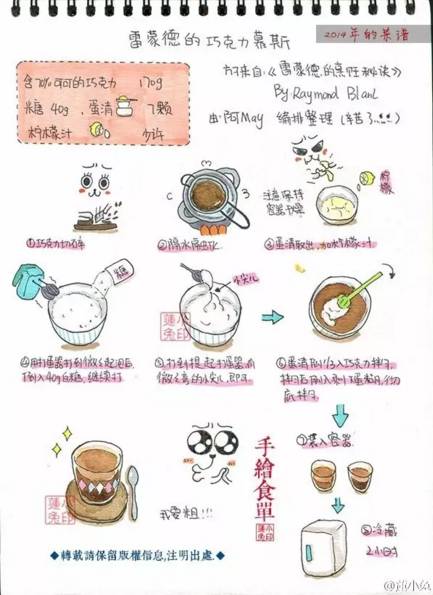 2014年的菜谱
雷蒙德的巧克力慕斯
含70%可可的巧克力 170g
糖 40g，蛋清 7颗
柠檬汁 少许
By Raymond Blanc
由：阿May 编排整理（辛苦了
柠檬
注意保持
容器干燥
①巧克力切碎
②隔水熔化
③蛋清取出，加柠檬汁
糖
小尖儿
④用打蛋器打到微微起泡后，
倒入40g白糖，继续打
⑤打到提起打蛋器，有
微弯的小尖儿，即可
⑥蛋清取1/3入巧克力拌匀，
拌匀后倒入剩下蛋清，彻
底拌匀
⑦装入容器
⑧冷藏
2小时
我要粗!!!
手繪食單
◆轉載請保留版權信息,注明出處.◆